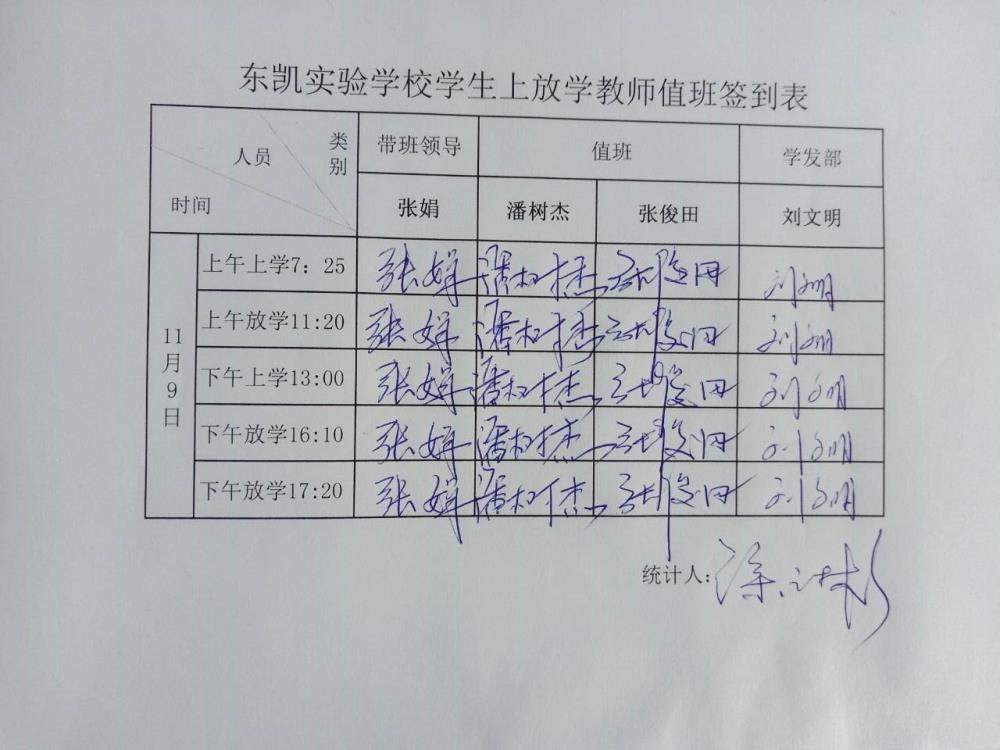 东凯实验学校学生上放学教师值班签到表
类别 人员 时间 带班领导 值班 学发部
张娟 潘树杰 张俊田 刘文明
11月9日
上午上学7：25 张娟 潘树杰 张俊田 刘文明
上午放学11:20 张娟 潘树杰 张俊田 刘文明
下午上学13:00 张娟 潘树杰 张俊田 刘文明
下午放学16:10 张娟 潘树杰 张俊田 刘文明
下午放学17:20 张娟 潘树杰 张俊田 刘文明
统计人: